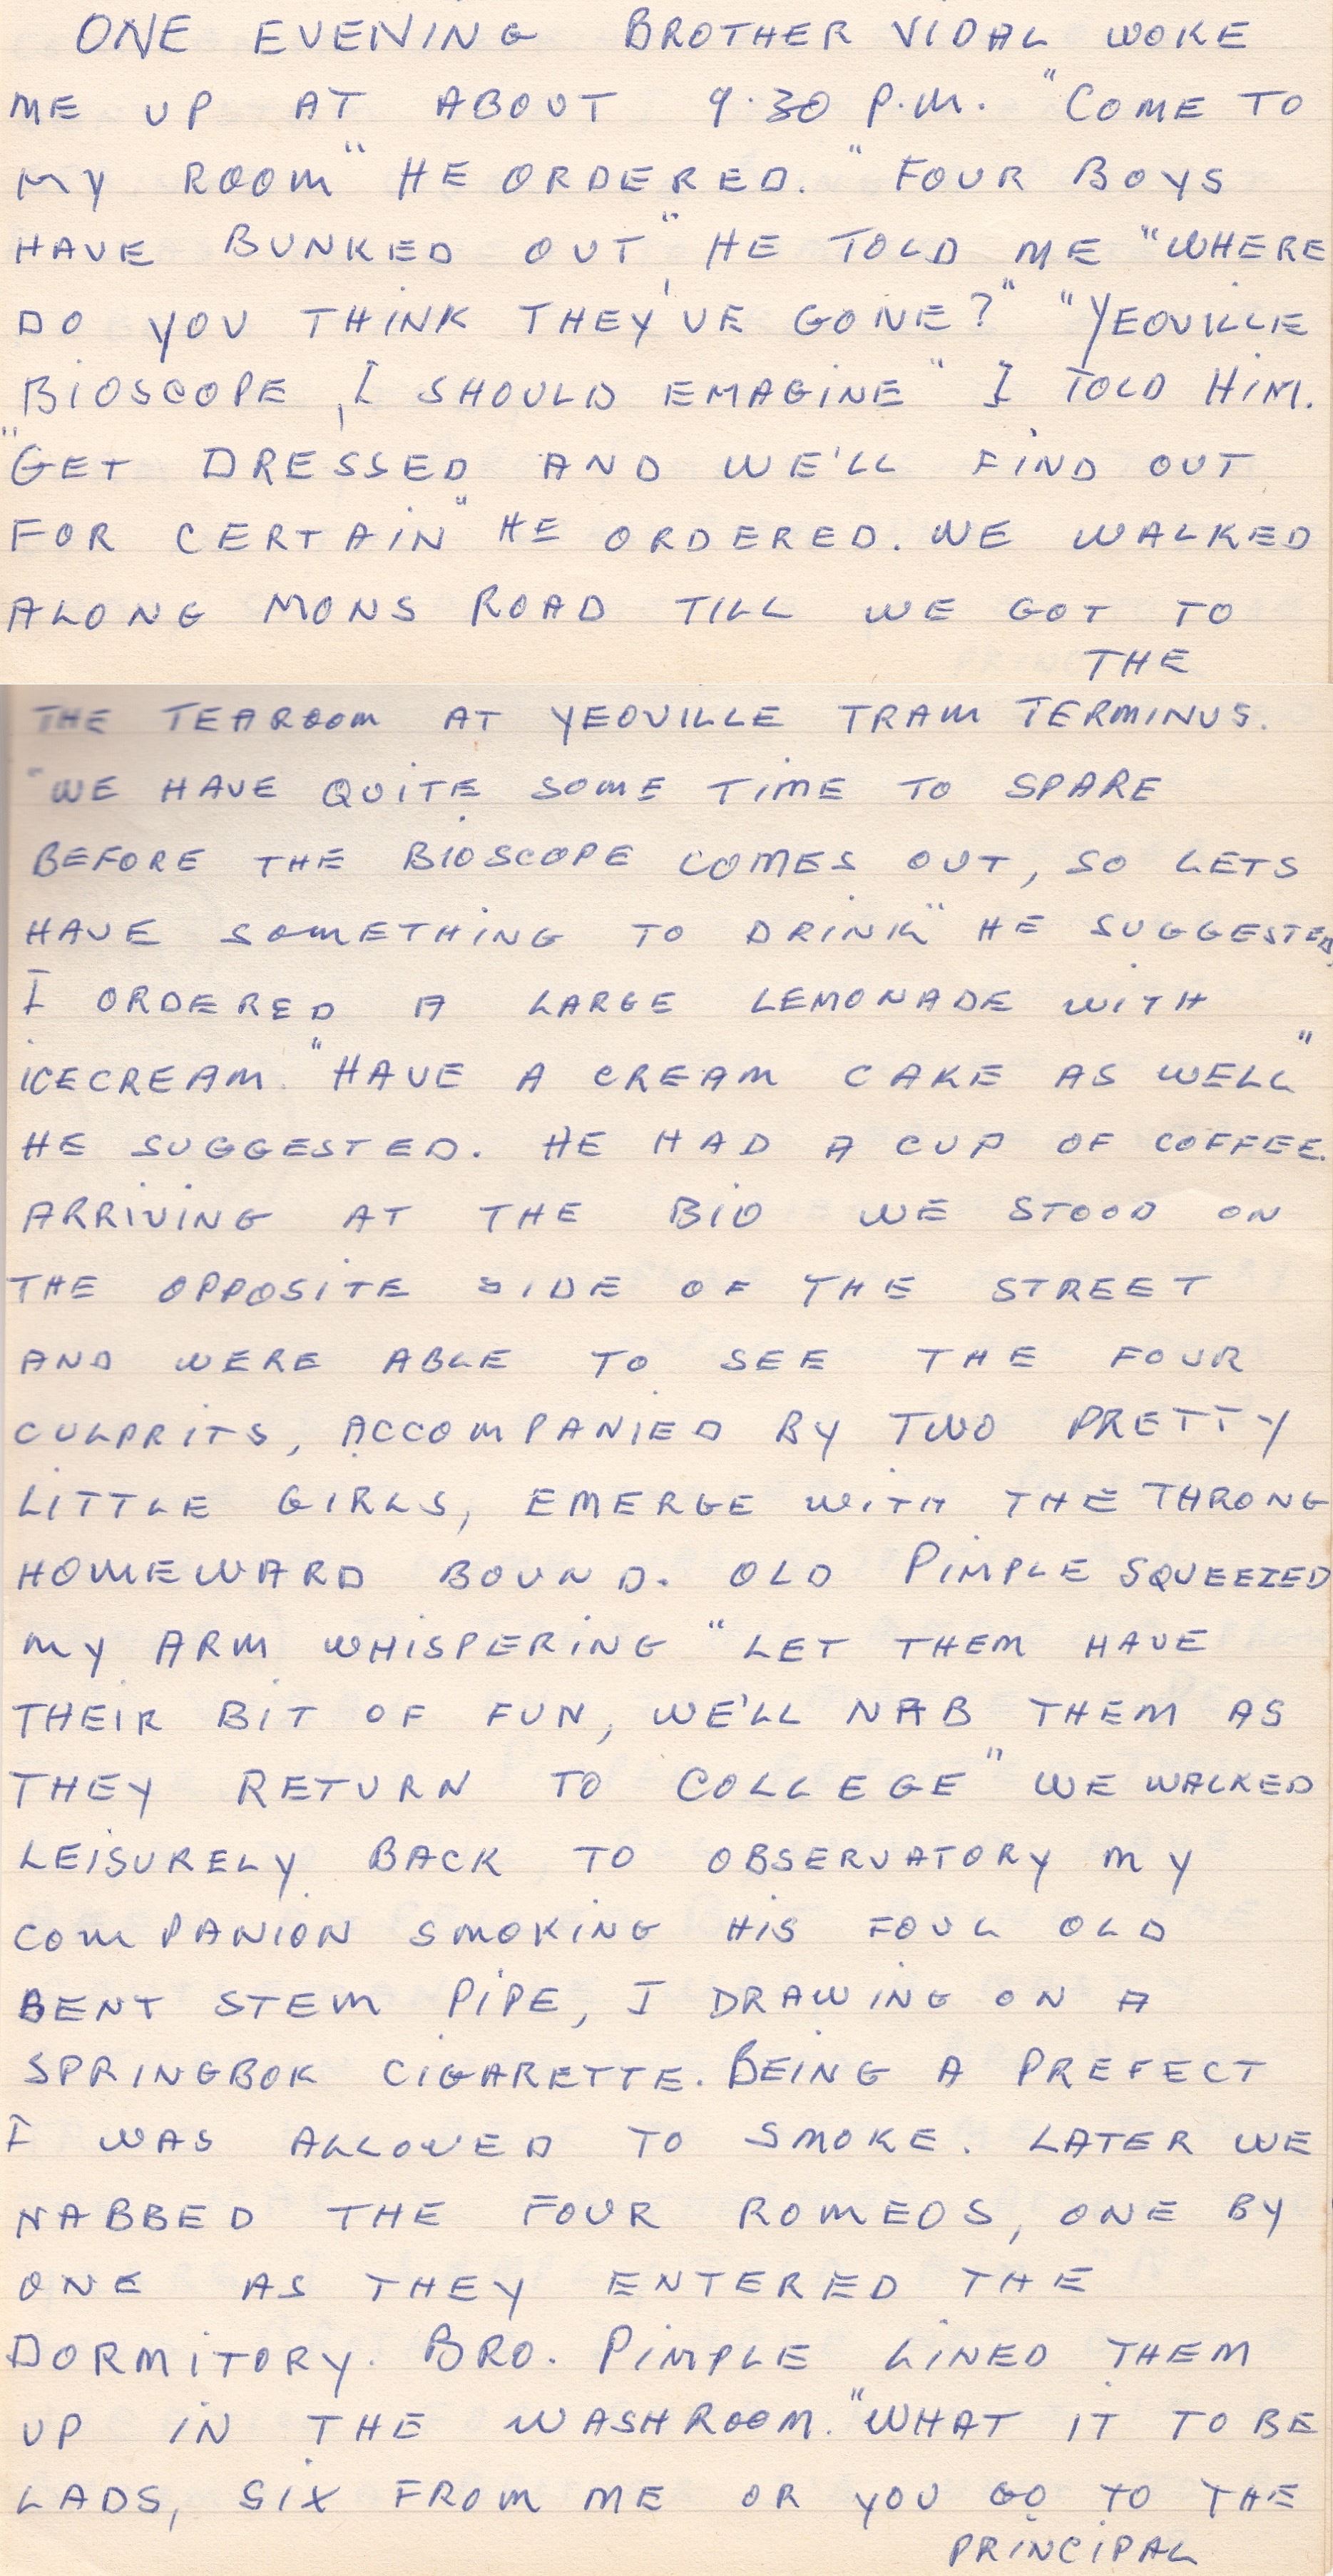 ONE EVENING BROTHER VIDAL WOKE
ME UP AT ABOUT 9.30 P.M. "COME TO
MY ROOM" HE ORDERED. "FOUR BOYS
HAVE BUNKED OUT", HE TOLD ME "WHERE
DO YOU THINK THEY'VE GONE?" "YEOVILLE
BIOSCOPE, I SHOULD EMAGINE" I TOLD HIM.
"GET DRESSED AND WE'LL FIND OUT
FOR CERTAIN" HE ORDERED. WE WALKED
ALONG MONS ROAD TILL WE GOT TO
THE
THE TEAROOM AT YEOVILLE TRAM TERMINUS.
"WE HAVE QUITE SOME TIME TO SPARE
BEFORE THE BIOSCOPE COMES OUT, SO LETS
HAVE SOMETHING TO DRINK" HE SUGGESTED.
I ORDERED A LARGE LEMONADE WITH
ICECREAM. "HAVE A CREAM CAKE AS WELL"
HE SUGGESTED. HE HAD A CUP OF COFFEE.
ARRIVING AT THE BIO WE STOOD ON
THE OPPOSITE SIDE OF THE STREET
AND WERE ABLE TO SEE THE FOUR
CULPRITS, ACCOMPANIED BY TWO PRETTY
LITTLE GIRLS, EMERGE WITH THE THRONG
HOMEWARD BOUND. OLD PIMPLE SQUEEZED
MY ARM WHISPERING "LET THEM HAVE
THEIR BIT OF FUN, WE'LL NAB THEM AS
THEY RETURN TO COLLEGE" WE WALKED
LEISURELY BACK TO OBSERVATORY MY
COMPANION SMOKING HIS FOUL OLD
BENT STEM PIPE, I DRAWING ON A
SPRINGBOK CIGARETTE. BEING A PREFECT
I WAS ALLOWED TO SMOKE. LATER WE
NABBED THE FOUR ROMEOS, ONE BY
ONE AS THEY ENTERED THE
DORMITORY. BRO. PIMPLE LINED THEM
UP IN THE WASHROOM. "WHAT IT TO BE
LADS, SIX FROM ME OR YOU GO TO THE
PRINCIPAL